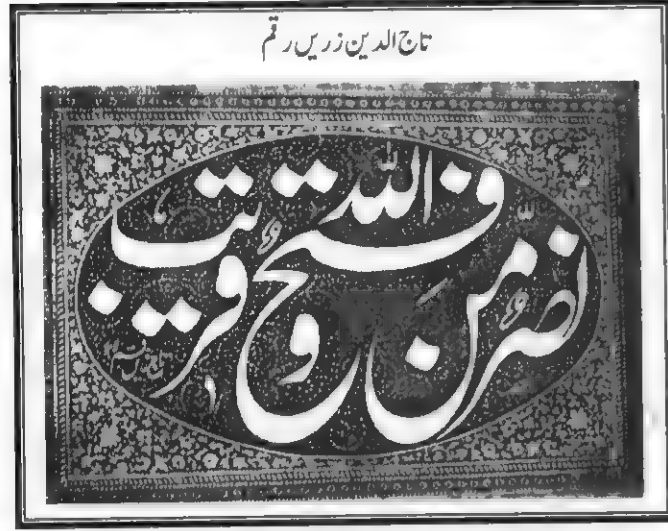 تاج الدین زریں رقم
نصر من اللہ و فتح قریب